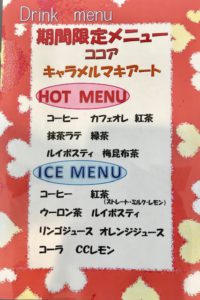 Drink menu
期間限定メニュー
ココア
キャラメルマキアート
HOT MENU
コーヒー カフェオレ 紅茶
抹茶ラテ 緑茶
ルイボスティ 梅昆布茶
ICE MENU
コーヒー 紅茶
(ストレート・ミルク・レモン)
ウーロン茶 ルイボスティ
リンゴジュース オレンジジュース
コーラ CCレモン